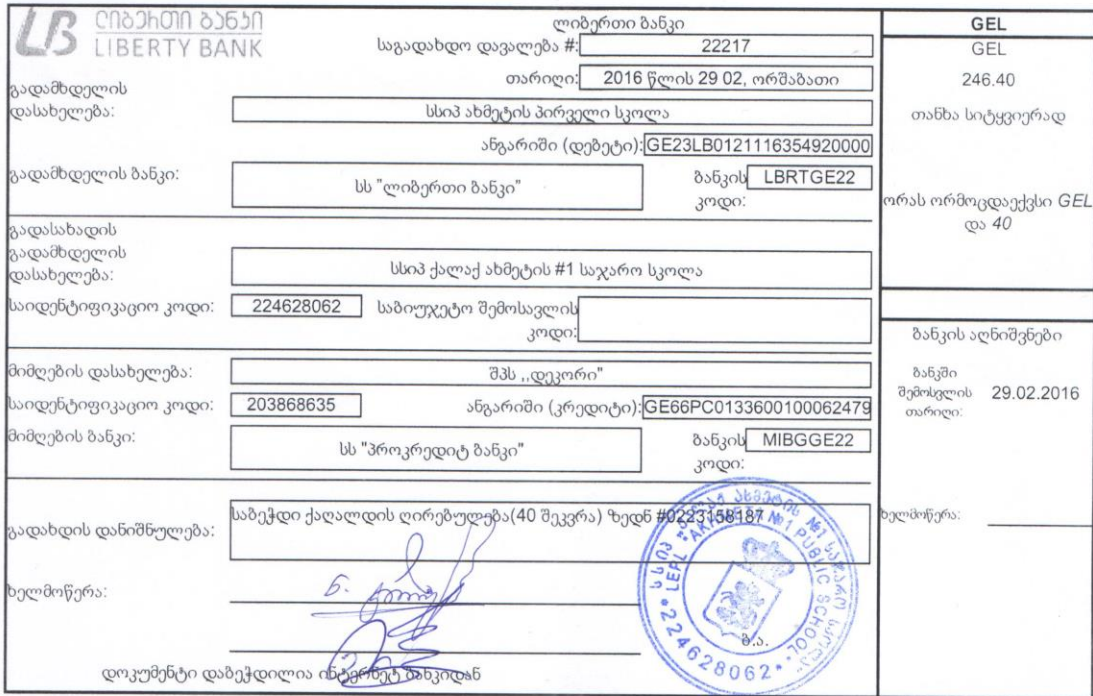 ლიბერთი ბანკი
LIBERTY BANK
ლიბერთი ბანკი
საგადახდო დავალება #: 22217
თარიღი: 2016 წლის 29 02, ორშაბათი
გადამხდელის
დასახელება: სსიპ ახმეტის პირველი სკოლა
ანგარიში (დებეტი): GE23LB0121116354920000
გადამხდელის ბანკი: სს "ლიბერთი ბანკი" ბანკის კოდი: LBRTGE22
გადასახადის
გადამხდელის
დასახელება: სსიპ ქალაქ ახმეტის #1 საჯარო სკოლა
საიდენტიფიკაციო კოდი: 224628062 საბიუჯეტო შემოსავლის
კოდი:
მიმღების დასახელება: შპს ,,დეკორი"
საიდენტიფიკაციო კოდი: 203868635 ანგარიში (კრედიტი): GE66PC0133600100062479
მიმღების ბანკი: სს "პროკრედიტ ბანკი" ბანკის კოდი: MIBGGE22
გადახდის დანიშნულება: საბეჭდი ქაღალდის ღირებულება(40 შეკვრა) ზედნ #0223158187
ხელმოწერა:
ბ.ა.
დოკუმენტი დაბეჭდილია ინტერნეტ ბანკიდან
GEL
GEL
246.40
თანხა სიტყვიერად
ორას ორმოცდაექვსი GEL
და 40
ბანკის აღნიშვნები
ბანკში
შემოსვლის 29.02.2016
თარიღი:
ხელმოწერა:
სსიპ ქალაქ ახმეტის №1 საჯარო სკოლა
LEPL "AKHMETA №1 PUBLIC SCHOOL"
*224628062*